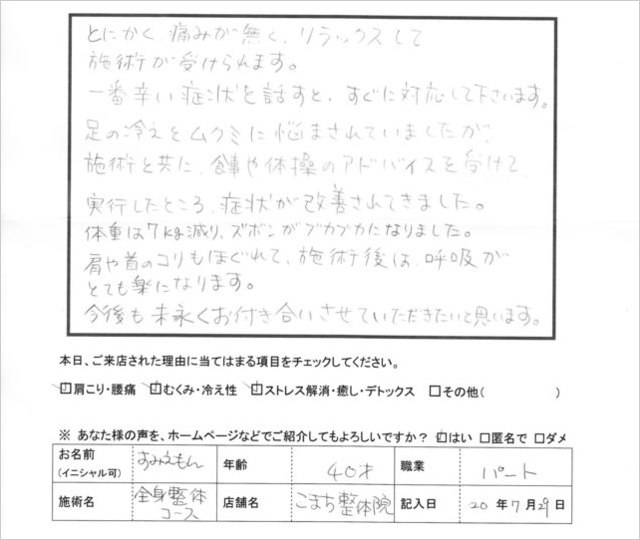 とにかく、痛みが無く、リラックスして
施術が受けられます。
一番辛い症状を話すと、すぐに対応して下さいます。
足の冷えとムクミに悩まされていましたが、
施術と共に、食事や体操のアドバイスを受けて、
実行したところ、症状が改善されてきました。
体重は7kg減り、ズボンがブカブカになりました。
肩や首のコリもほぐれて、施術後は、呼吸が
とても楽になります。
今後も末永くお付き合いさせていただきたいと思います。
本日、ご来店された理由に当てはまる項目をチェックしてください。
☑肩こり・腰痛 ☑むくみ・冷え性 ☑ストレス解消・癒し・デトックス □その他( )
※ あなた様の声を、ホームページなどでご紹介してもよろしいですか? ☑はい □匿名で □ダメ
お名前 (イニシャル可) すみえもん 年齢 40才 職業 パート
施術名 全身整体コース 店舗名 こまち整体院 記入日 20 年 7 月 29 日